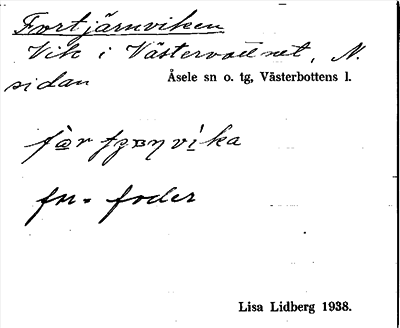 Fortjärnviken
Vik i Västervattnet, N.
sidan
Åsele sn o. tg, Västerbottens l.
fn. foder
Lisa Lidberg 1938.